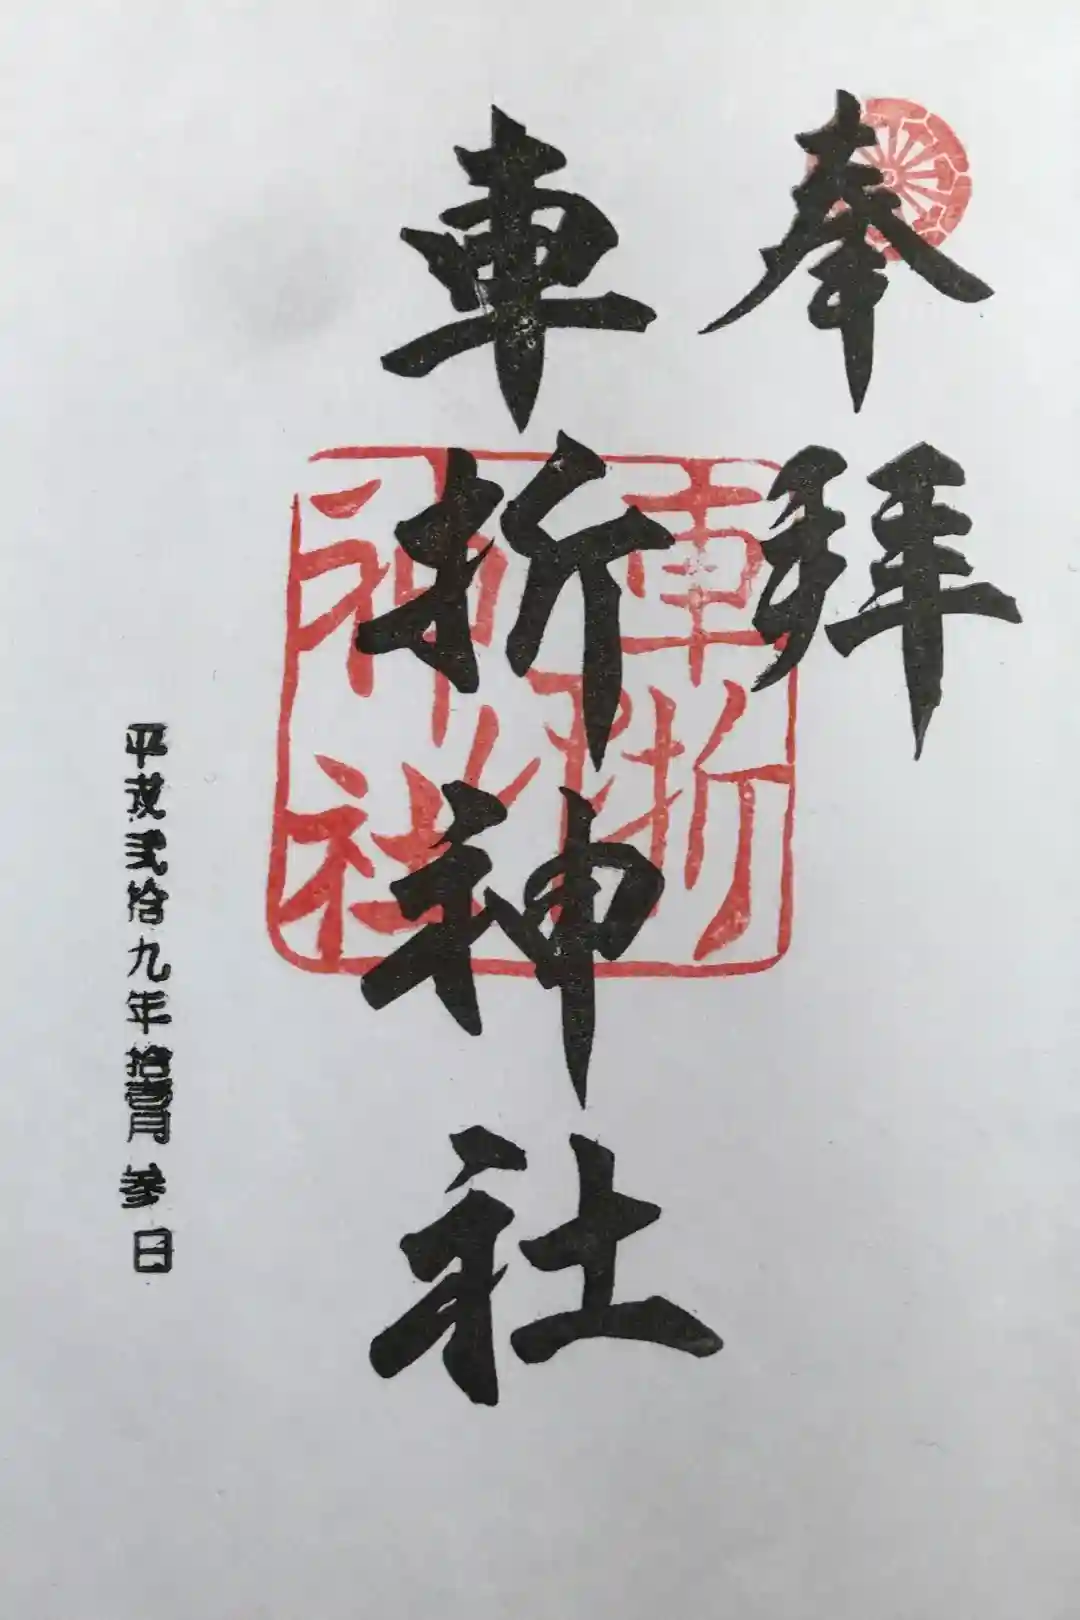 奉拝
車折神社
車折
神社
平成弐拾九年拾壹月参日